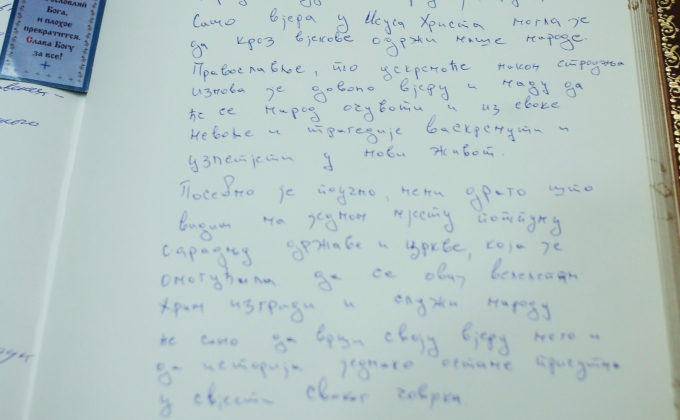 Бога,
и плохое
прекратится.
Слава Богу
за все!
Само вјера у Исуса Христа могла је
да кроз вјекове одржи наше народе.
Православље, то ускрснуће након страдања
изнова је давало вјеру и наду да
ће се народ очувати и из сваке
невоље и трагедије васкрснути и
узлетјети у нови живот.
Посебно је поучно, мени драго што
видим на једном мјесту потпуну
сарадњу државе и цркве, која је
омогућила да се овај велелепни
храм изгради и служи народу
не само да врши своју вјеру него и
да историја једнако остане присутна
у свјести сваког човјека.